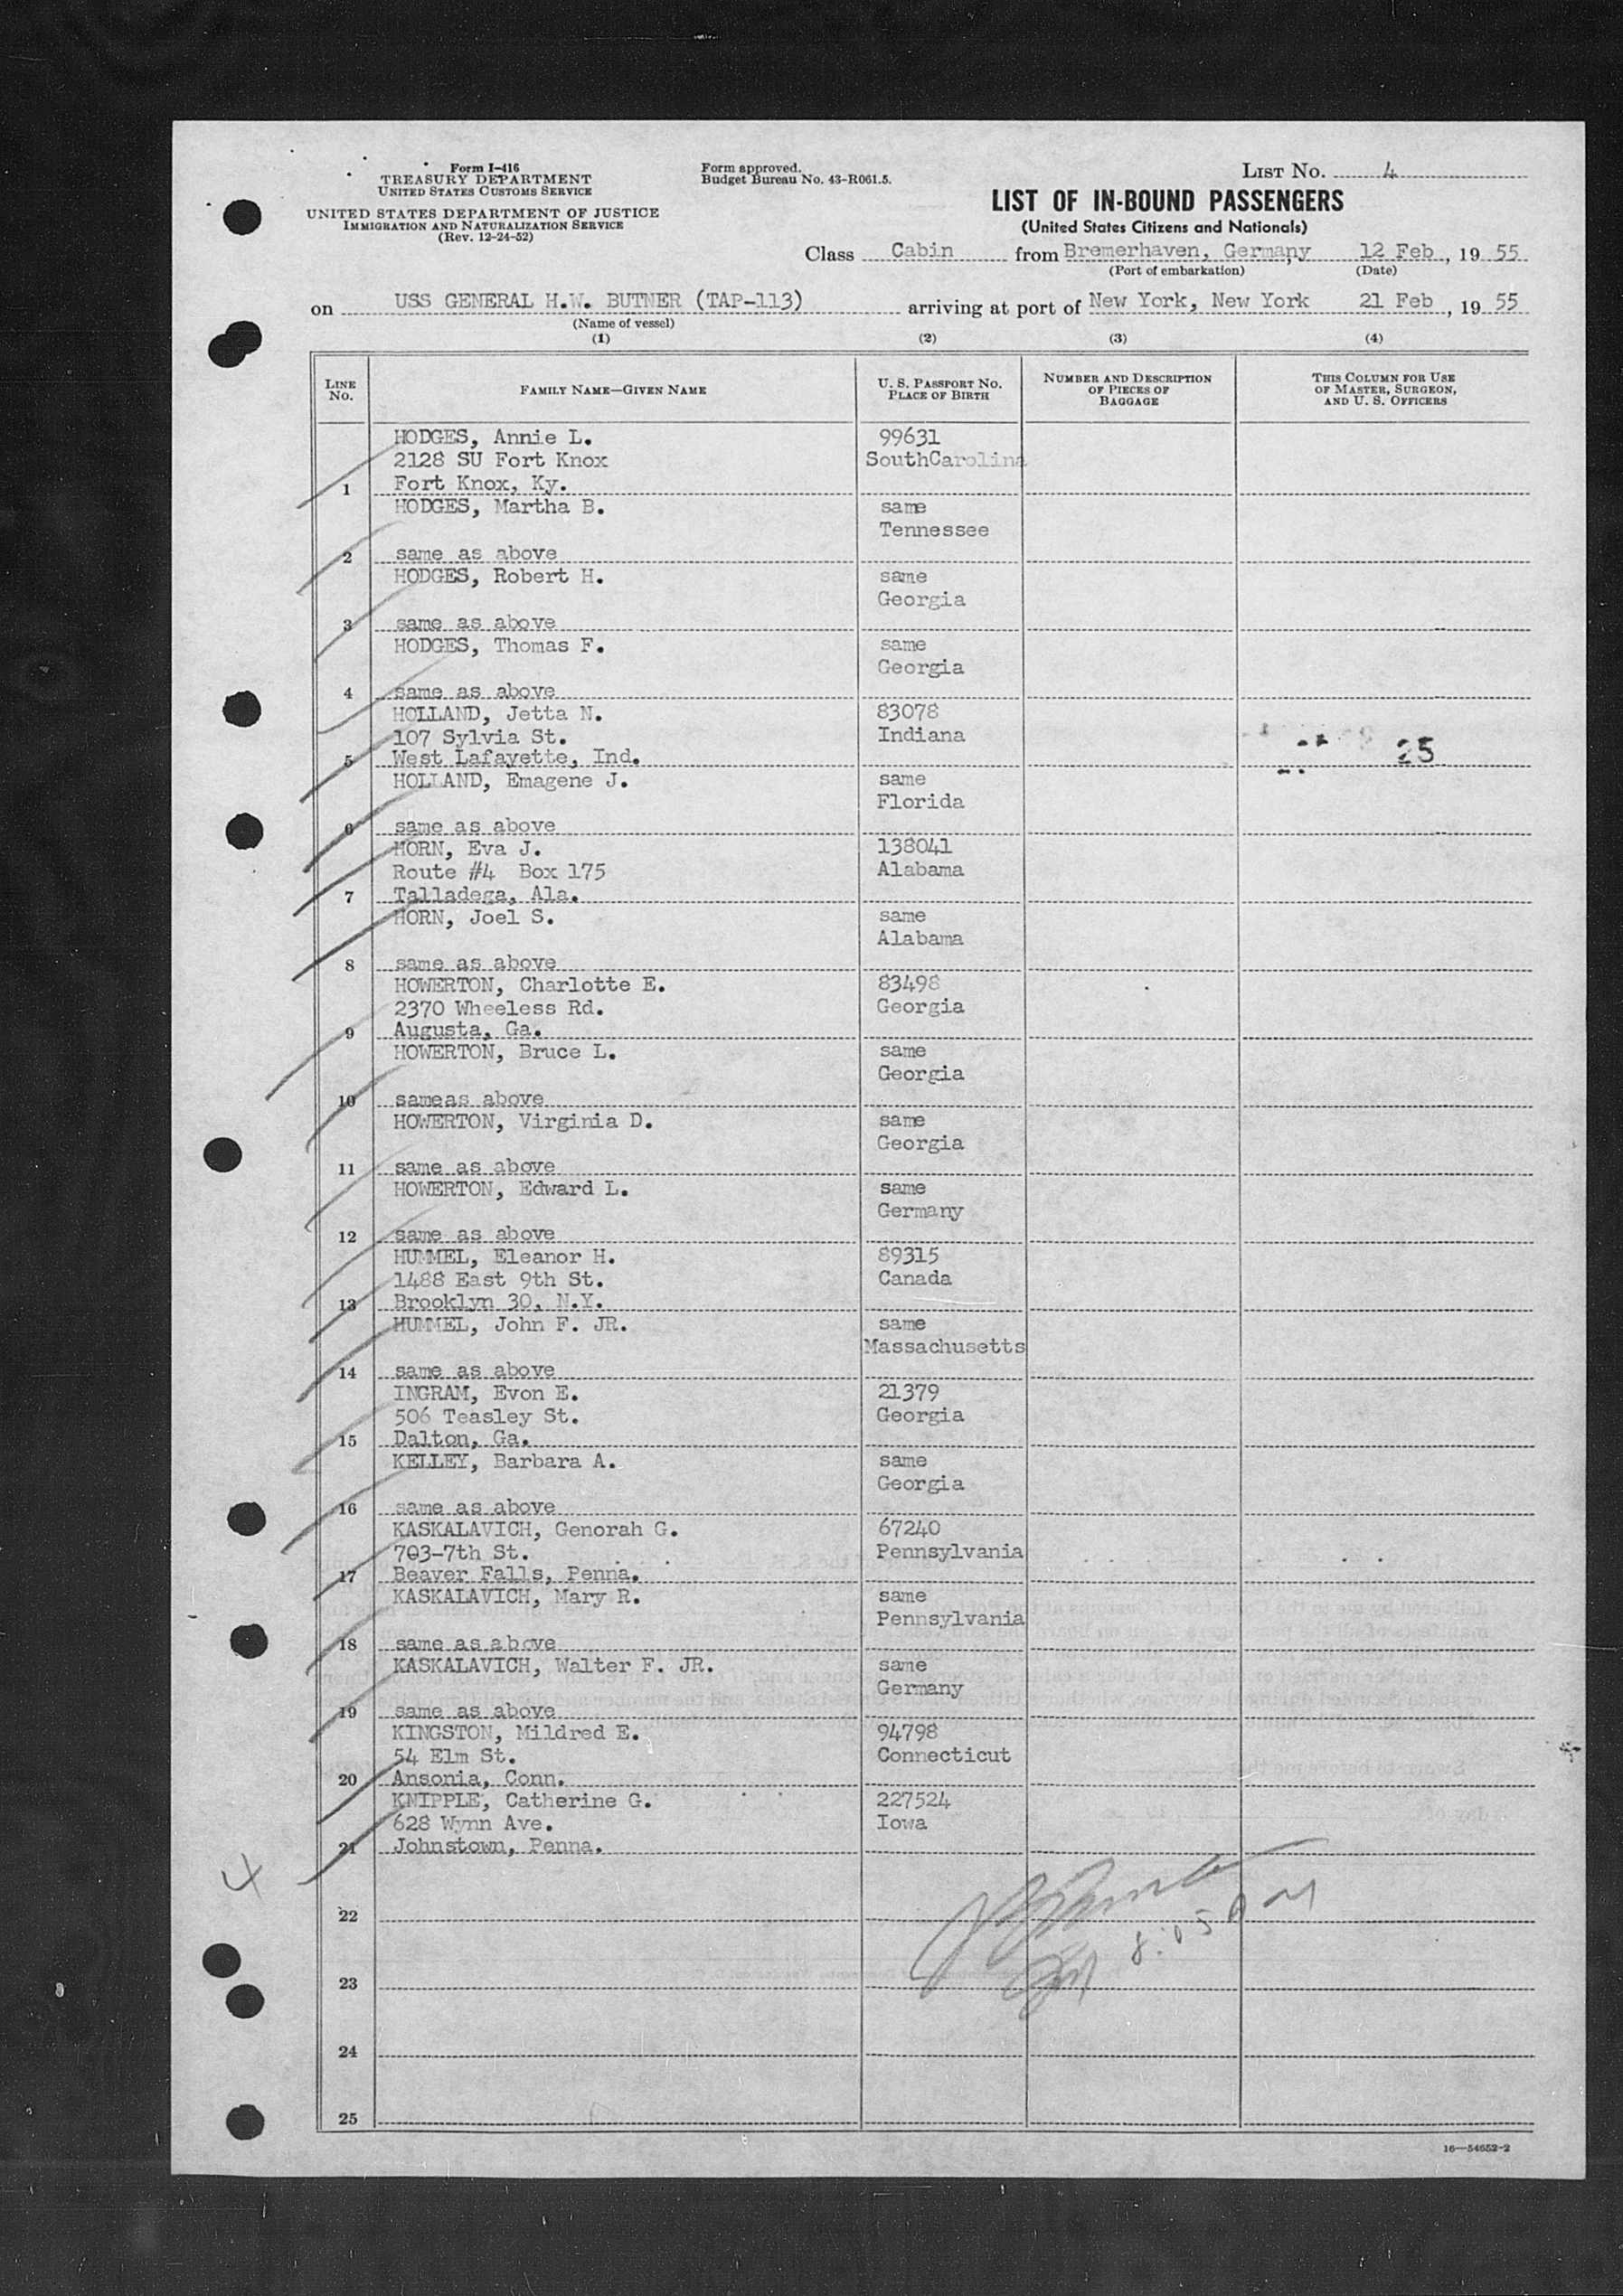 Form I-416
TREASURY DEPARTMENT
UNITED STATES CUSTOMS SERVICE
UNITED STATES DEPARTMENT OF JUSTICE
IMMIGRATION AND NATURALIZATION SERVICE
(Rev. 12-24-52)
Form approved.
Budget Bureau No. 43-R061.5.
LIST No. 4
LIST OF IN-BOUND PASSENGERS
(United States Citizens and Nationals)
Class Cabin from Bremerhaven, Germany, 12 Feb, 19 55
(Port of embarkation) (Date)
on USS GENERAL H.W. BUTNER (TAP-113) arriving at port of New York, New York 21 Feb, 19 55
(Name of vessel)
(1) (2) (3) (4)
LINE No. FAMILY NAME—GIVEN NAME U. S. PASSPORT NO. PLACE OF BIRTH NUMBER AND DESCRIPTION OF PIECES OF BAGGAGE THIS COLUMN FOR USE OF MASTER, SURGEON, AND U. S. OFFICERS
HODGES, Annie L. 99631
2128 SU Fort Knox SouthCarolina
1 Fort Knox, Ky.
HODGES, Martha B. same
Tennessee
2 same as above
HODGES, Robert H. same
Georgia
3 same as above
HODGES, Thomas F. same
Georgia
4 same as above
HOLLAND, Jetta N. 83078
107 Sylvia St. Indiana
5 West Lafayette, Ind. 25
HOLLAND, Emagene J. same
Florida
6 same as above
HORN, Eva J. 138041
Route #4 Box 175 Alabama
7 Talladega, Ala.
HORN, Joel S. same
Alabama
8 same as above
HOWERTON, Charlotte E. 83498
2370 Wheeless Rd. Georgia
9 Augusta, Ga.
HOWERTON, Bruce L. same
Georgia
10 sameas above
HOWERTON, Virginia D. same
Georgia
11 same as above
HOWERTON, Edward L. same
Germany
12 same as above
HUMMEL, Eleanor H. 89315
1488 East 9th St. Canada
13 Brooklyn 30, N.Y.
HUMMEL, John F. JR. same
Massachusetts
14 same as above
INGRAM, Evon E. 21379
506 Teasley St. Georgia
15 Dalton, Ga.
KELLEY, Barbara A. same
Georgia
16 same as above
KASKALAVICH, Genorah G. 67240
703-7th St. Pennsylvania
17 Beaver Falls, Penna.
KASKALAVICH, Mary R. same
Pennsylvania
18 same as above
KASKALAVICH, Walter F. JR. same
Germany
19 same as above
KINGSTON, Mildred E. 94798
54 Elm St. Connecticut
20 Ansonia, Conn.
KNIPPLE, Catherine G. 227524
628 Wynn Ave. Iowa
21 Johnstown, Penna.
4
22
8:05
23
24
25
16—54652-2